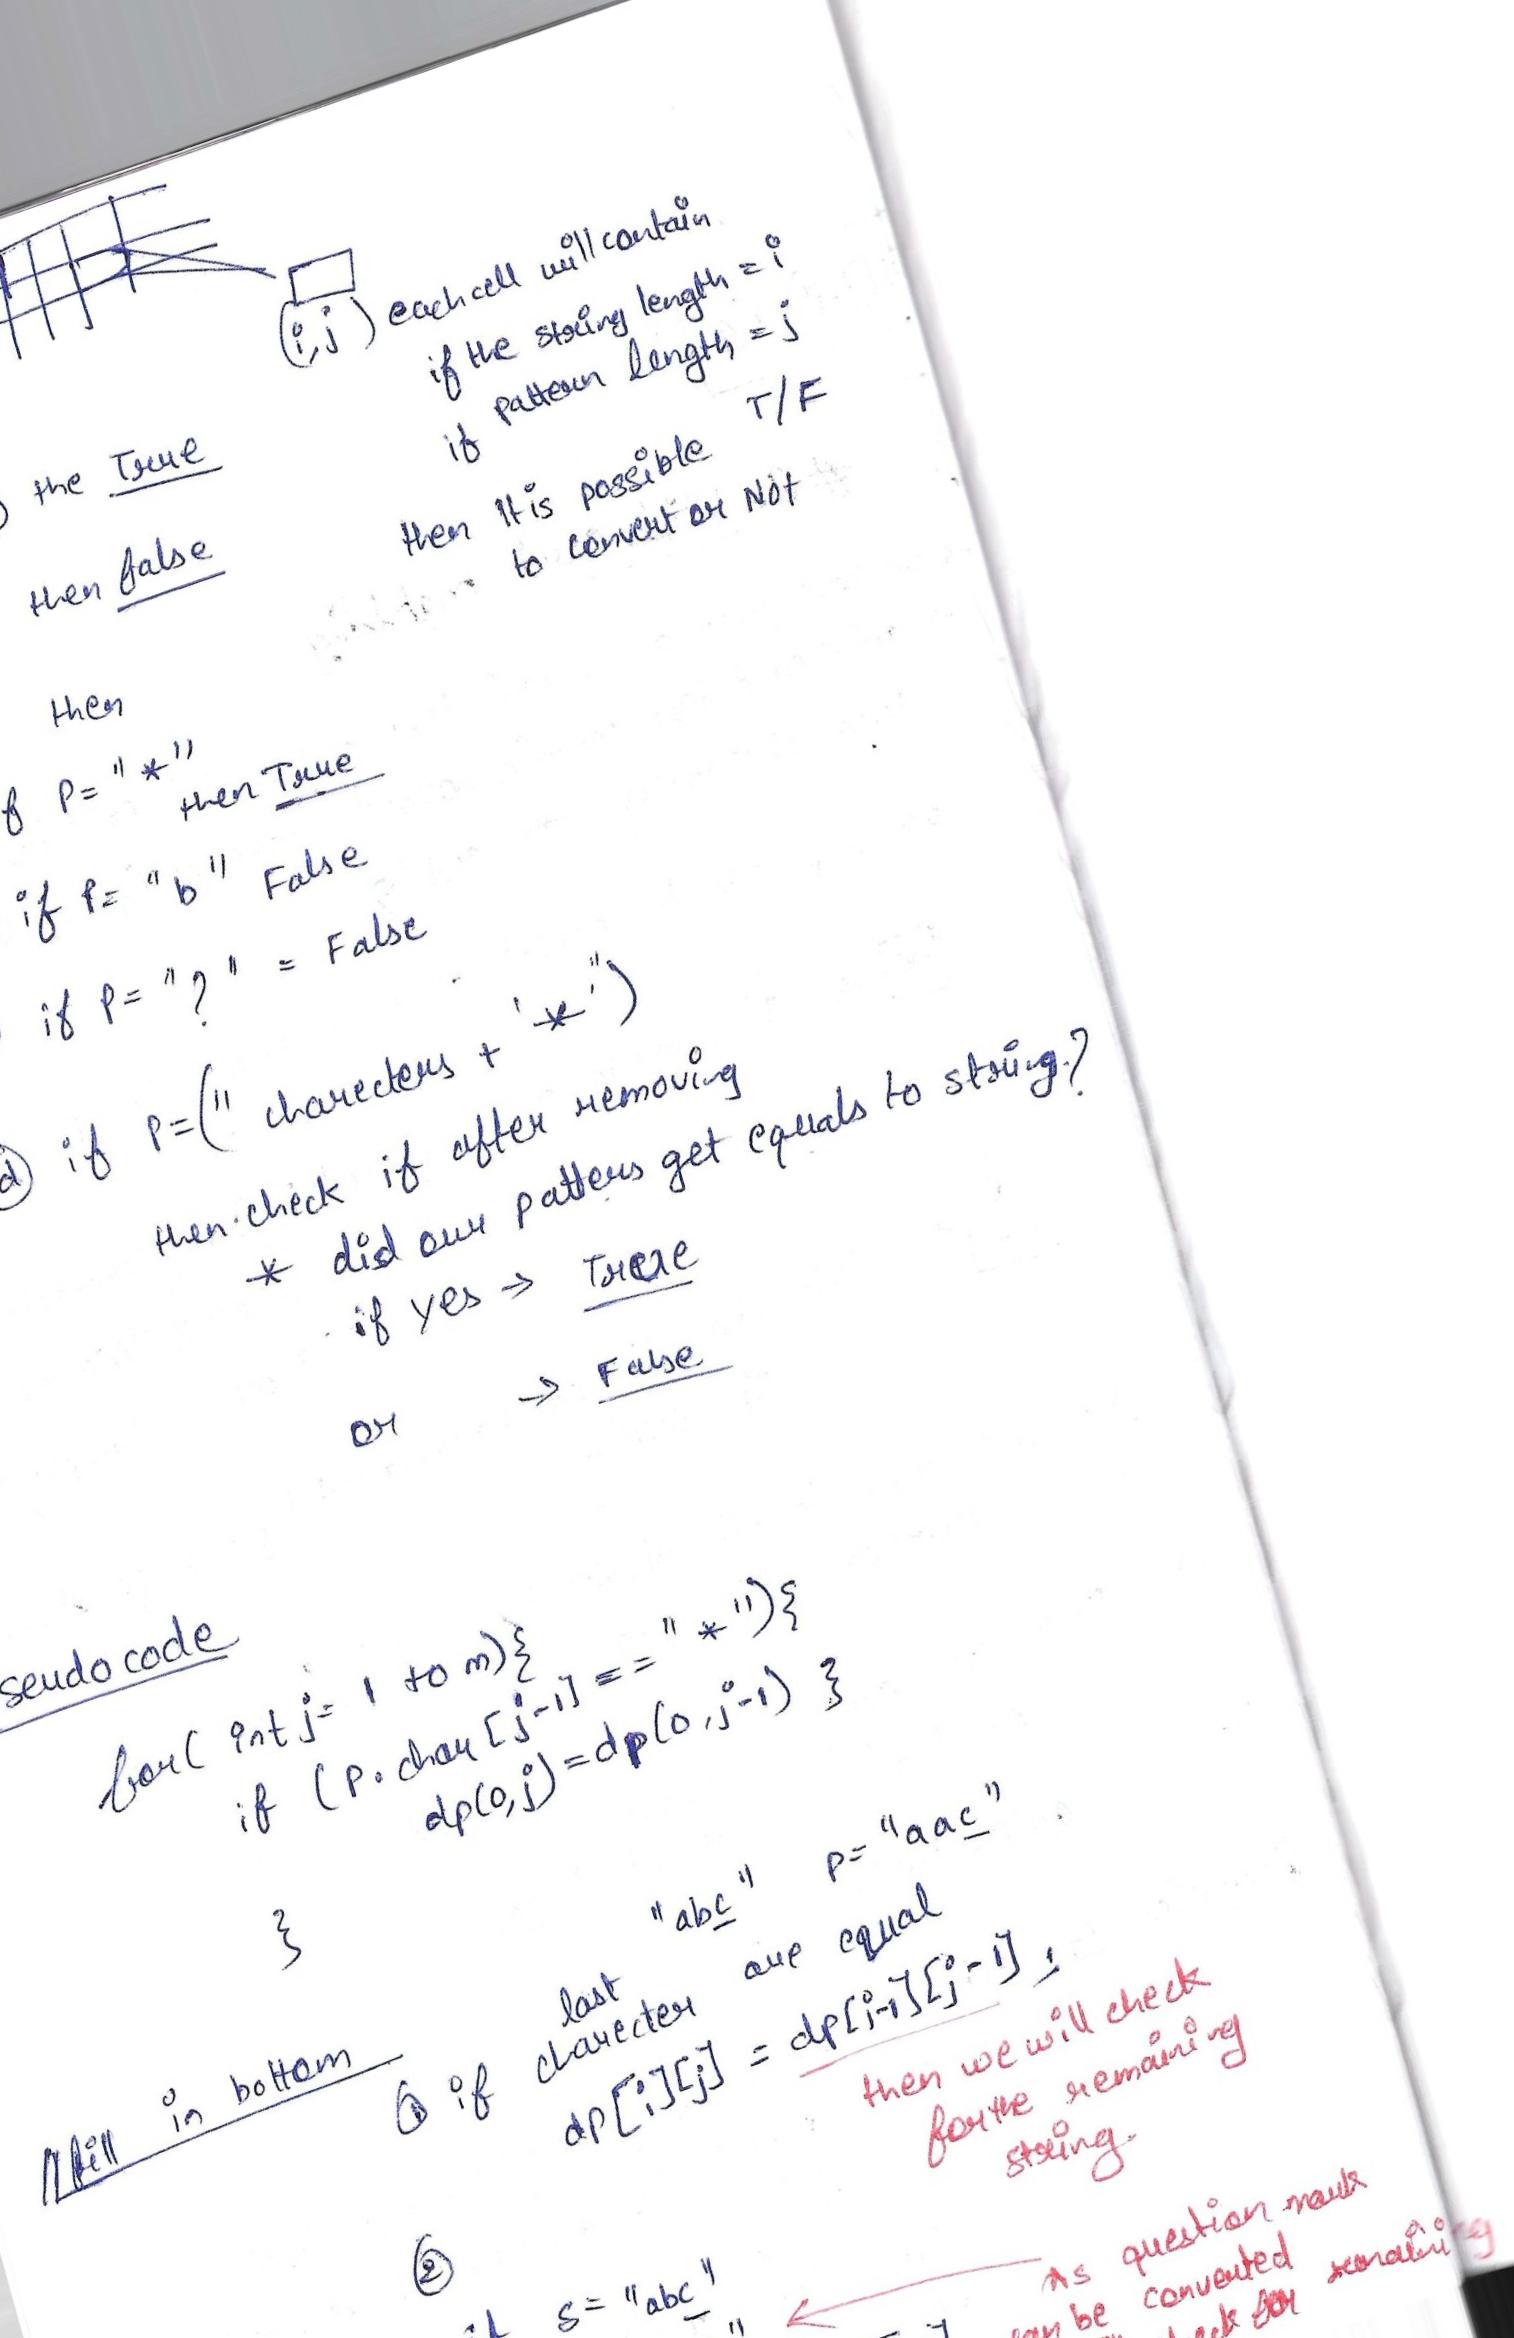 (i,j) each cell will contain
if the string length = i
if pattern length = j
then it is possible T/F
to convert or Not
the True
then false
then
P= "*"
then True
if P= "b" False
if P= "?" = False
d if P=(" charecters + '*'")
then check if after removing
* did our pattern get equals to string?
if yes → True
or → False
seudo code
for( int j= 1 to m){
if (p.char[j-1] == "*"){
dp(0,j)=dp(0,j-1) }
}
"abc" p= "aac"
//fill in bottom
① if last charecter are equal
dp[i][j] = dp[i-1][j-1];
then we will check
for the remaining
string.
②
s= "abc"
As question mark
be converted
for remaining